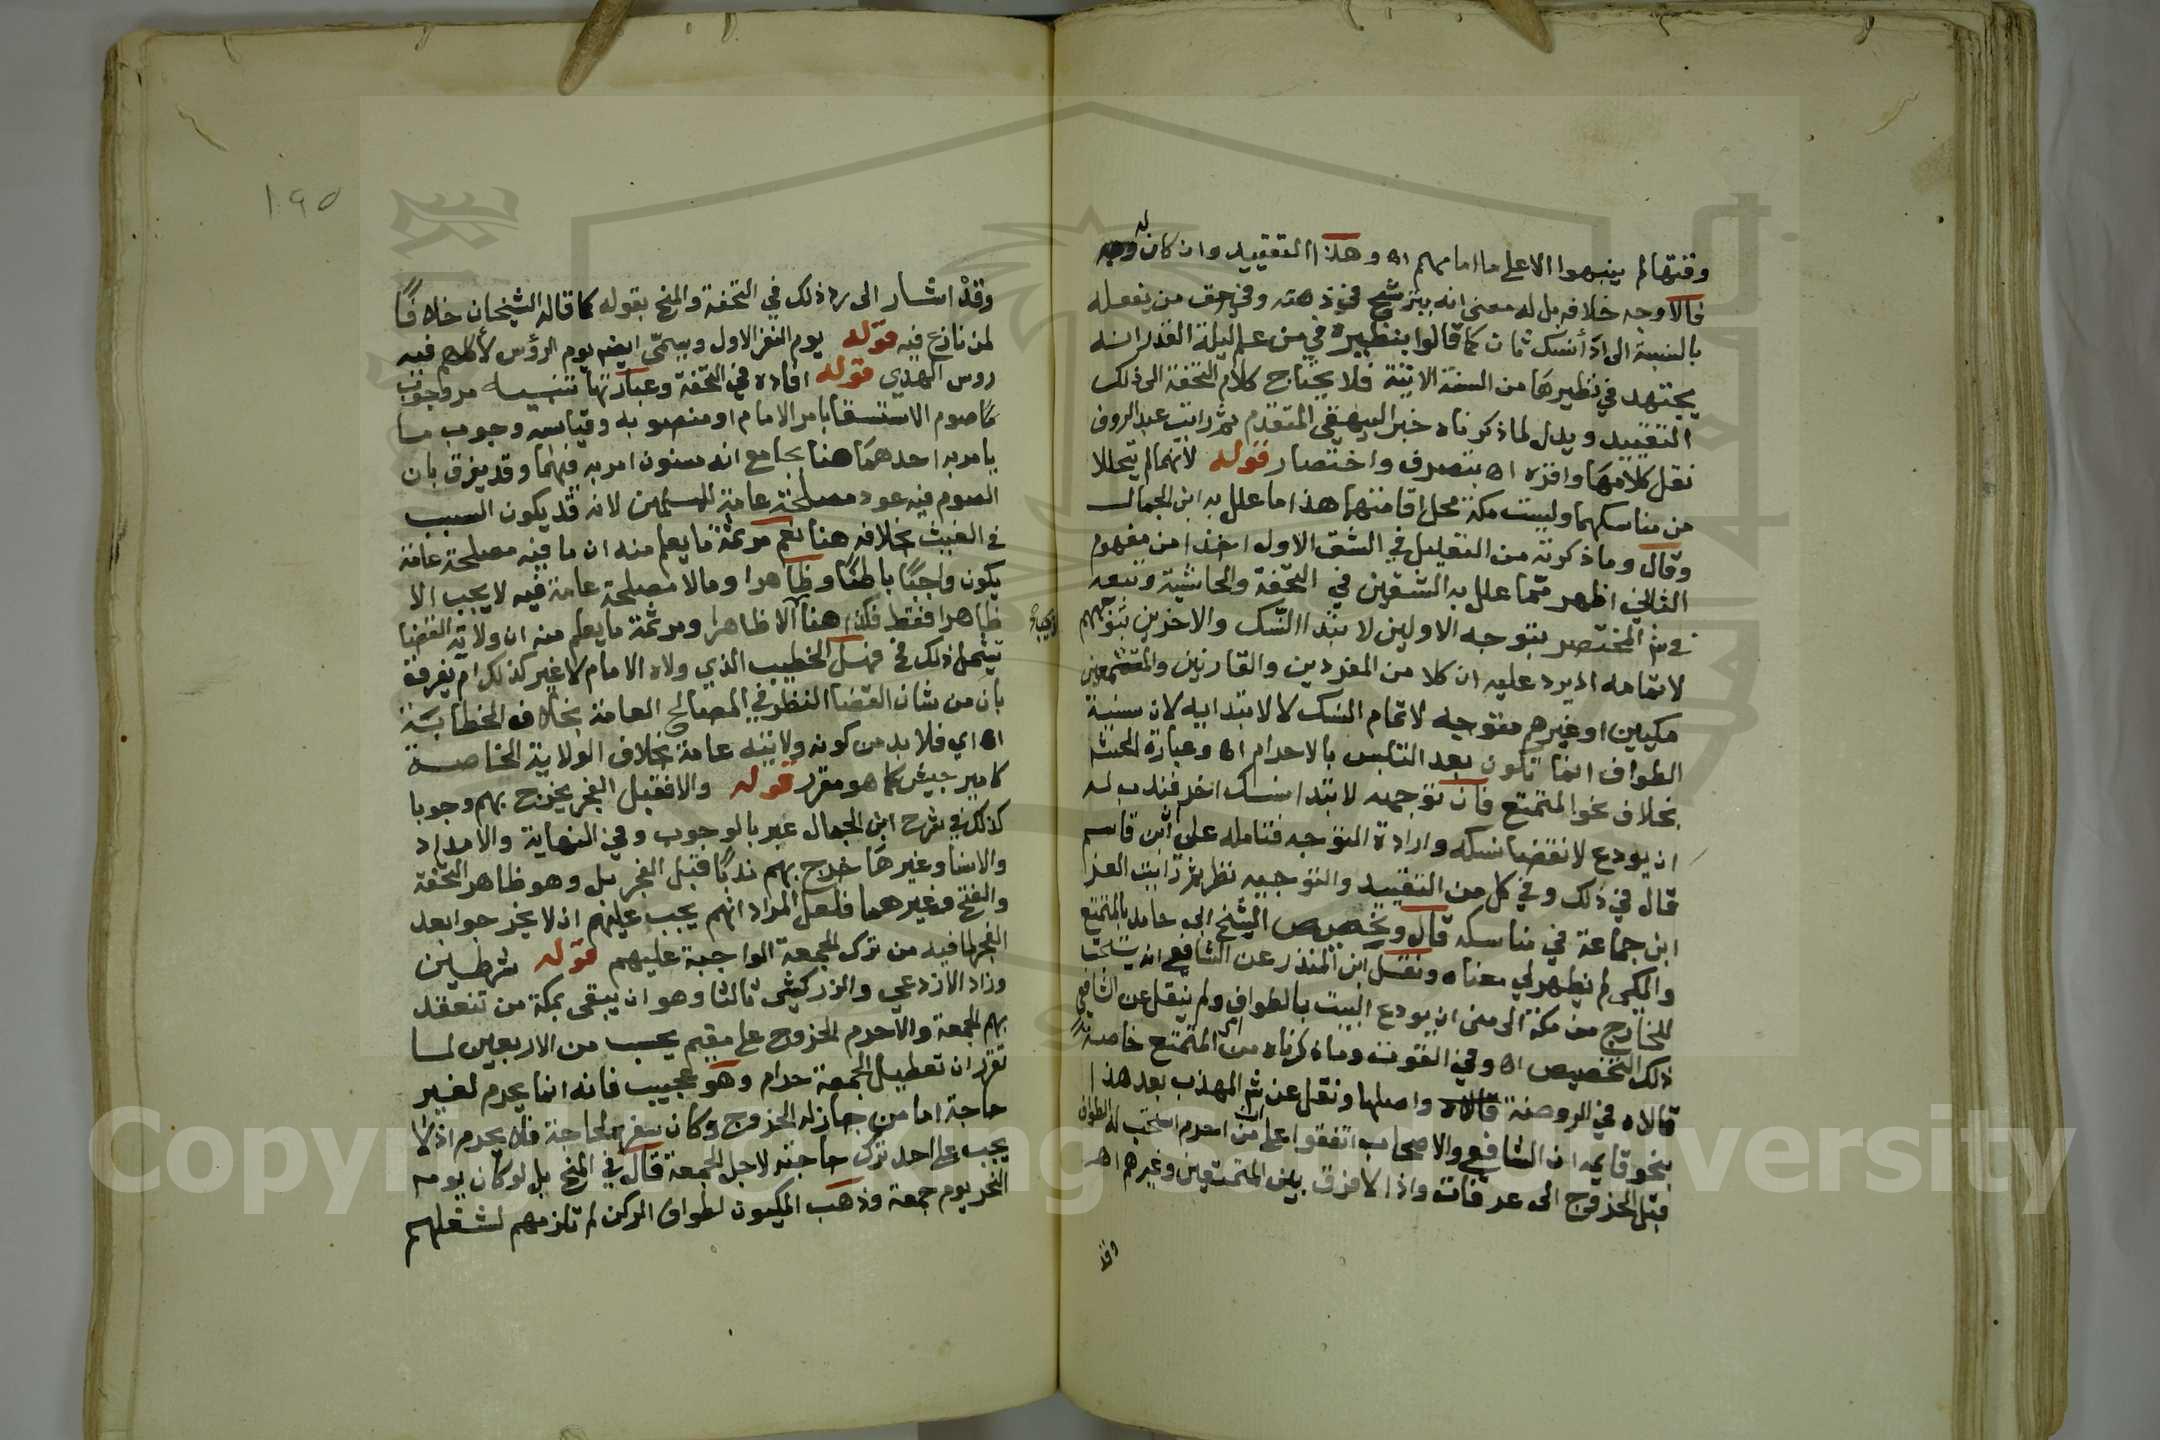 وقتها لم ينبهوا الا على ما امامهم اه وهذا التقييد وان كان له وجه
فالاوجه خلافه بل له معنى انه يترشح في ذهنه وفي حق من يفعله
بالنسبة الى اداء نسك ثان كما قالوا بنظيره في من علم ليلة القدر انه
يجتهد في نظيرها من السنة الاتية فلا يحتاج كلام التحفة الى ذلك
التقييد ويدل لما ذكرناه خبر البيهقي المتقدم ثم رايت عبد الروف
نقل كلامها واقره اه بتصرف واختصار قوله لانهما لم يتحللا
من مناسكهما وليست مكة محل اقامتهما هذا ما علل به ابن الجمال
وقال وما ذكرته من التعليل في الشق الاول اخذا من مفهوم
الثاني اظهر مما علل به الشقين في التحفة والحاشية وتبعه
في شم المختصر بتوجه الاولين لابتداء النسك والاخرين بتوجههم
لاتمامه اذ يرد عليه ان كلا من المفردين والقارنين والمتمتعين
مكيين او غيرهم متوجه لاتمام النسك لا لابتدايه لان سنية
الطواف انما تكون بعد التلبس بالاحرام اه وعبارة المحشم
بخلاف نحو المتمتع فان توجهه لابتداء نسك اخر فندب له
ان يودع لانقضا نسكه وارادة التوجه فتامله على ابن قاسم
قال في ذلك وفي كل من التقييد والتوجيه نظر ثم رايت العز
ابن جماعة في مناسكه قال وتخصيص الشيخ ابي حامد بالمتمتع
والمكي لم يظهر لي معناه ونقل ابن المنذر عن الشافعي انه يستحب
للخارج من مكة الى منى ان يودع البيت بالطواف ولم ينقل عن الشافعي
ذلك التخصيص اه وفي القوت وما ذكرناه من امر المتمتع خاصة
قالاه في الروضة واصلها ونقل عن شم المهذب بعد هذا
بنحو قايمه ان الشافعي والاصحاب اتفقوا على ان من احرم استحب له الطواف
قبل الخروج الى عرفات واذا لا فرق بين المتمتعين وغيرهم اه
وقد
١٩٥
وقد اشار الى رد ذلك في التحفة والمنح بقوله كما قاله الشيخان خلافا
لمن نازع فيه قوله يوم النفر الاول ويسمى ايضا يوم الرؤس لأكلهم فيه
روس الهدي قوله افاده في التحفة وعبارتها تنبيه مر وجوب
صوم الاستسقا بامر الامام او منصوبه وقياسه وجوب ما
يامر به احدهما هنا بجامع انه مسنون امر به فيهما وقد يفرق بان
الصوم فيه عود مصلحة عامة للمسلمين لانه قد يكون السبب
في الغيث بخلافه هنا نعم مر ثمة ما يعلم منه ان ما فيه مصلحة عامة
يكون واجبا باطنا وظاهرا وما لا مصلحة عامة فيه لا يجب الا
لايجب
ظاهرا فقط فكذا هنا الا ظاهرا ومر ثمة ما يعلم منه ان ولاية القضا
تشمل ذلك فهل الخطيب الذي ولاه الامام لا غير كذلك ام يفرق
بان من شان القضا النظر في المصالح العامة بخلاف الخطابة
اه اي فلا بد من كونه ولايته عامة بخلاف الولاية الخاصة
كامير جيش كما هو مقرر قوله والا فقبل الفجر يخرج بهم وجوبا
كذلك في شرح ابن الجمال عبر بالوجوب وفي النهاية والامداد
والاسنا وغيرها خرج بهم ندبا قبل الفجر بل وهو ظاهر التحفة
والفتح وغيرهما فلعل المراد انهم يجب عليهم ان لا يخرجوا بعد
الفجر لما فيه من ترك الجمعة الواجبة عليهم قوله شرطين
وزاد الاذرعي والزركشي ثالثا وهو ان يبقى بمكة من تنعقد
بهم الجمعة والا حرم الخروج على مقيم يحسب من الاربعين لما
تقرر ان تعطيل الجمعة حرام وهو عجيب فانه انما يحرم لغير
حاجة اما من جاز له الخروج وكان سفره لحاجة فلا يحرم اذ لا
يجب على احد ترك حاجته لاجل الجمعة قال في المنح بل لو كان يوم
النحر يوم جمعة وذهب المكيون لطواف الركن لم تلزمهم لشغلهم
Copyright © King Saud University